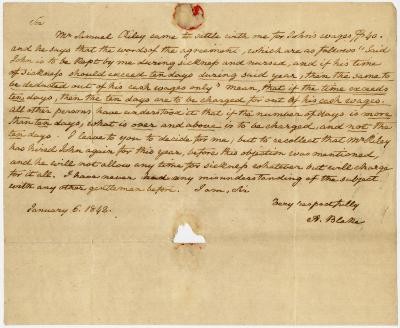 Sir
Mr Samuel Riley came to settle with me for John's wages, $90.
and he says that the words of the agreement, which are as follows "Said
John is to be kept by me during sickness and nursed, and if his time
of sickness should exceed ten days during said year, then the same to
be deducted out of his cash wages only" mean, that if the time exceeds
ten days, then the ten days are to be charged for out of his cash wages.
All other persons have understood it that if the number of days is more
than ten days, what is over and above is to be charged, and not the
ten days. I leave to you to decide for me; but to recollect that Mr Riley
has hired John again for this year, before this objection was mentioned,
and he will not allow any time for sickness whatever but will charge
for it all. I have never had any misunderstanding of the subject
with any other gentleman before. I am, Sir
Very respectfully
January 6. 1842. A. Blake